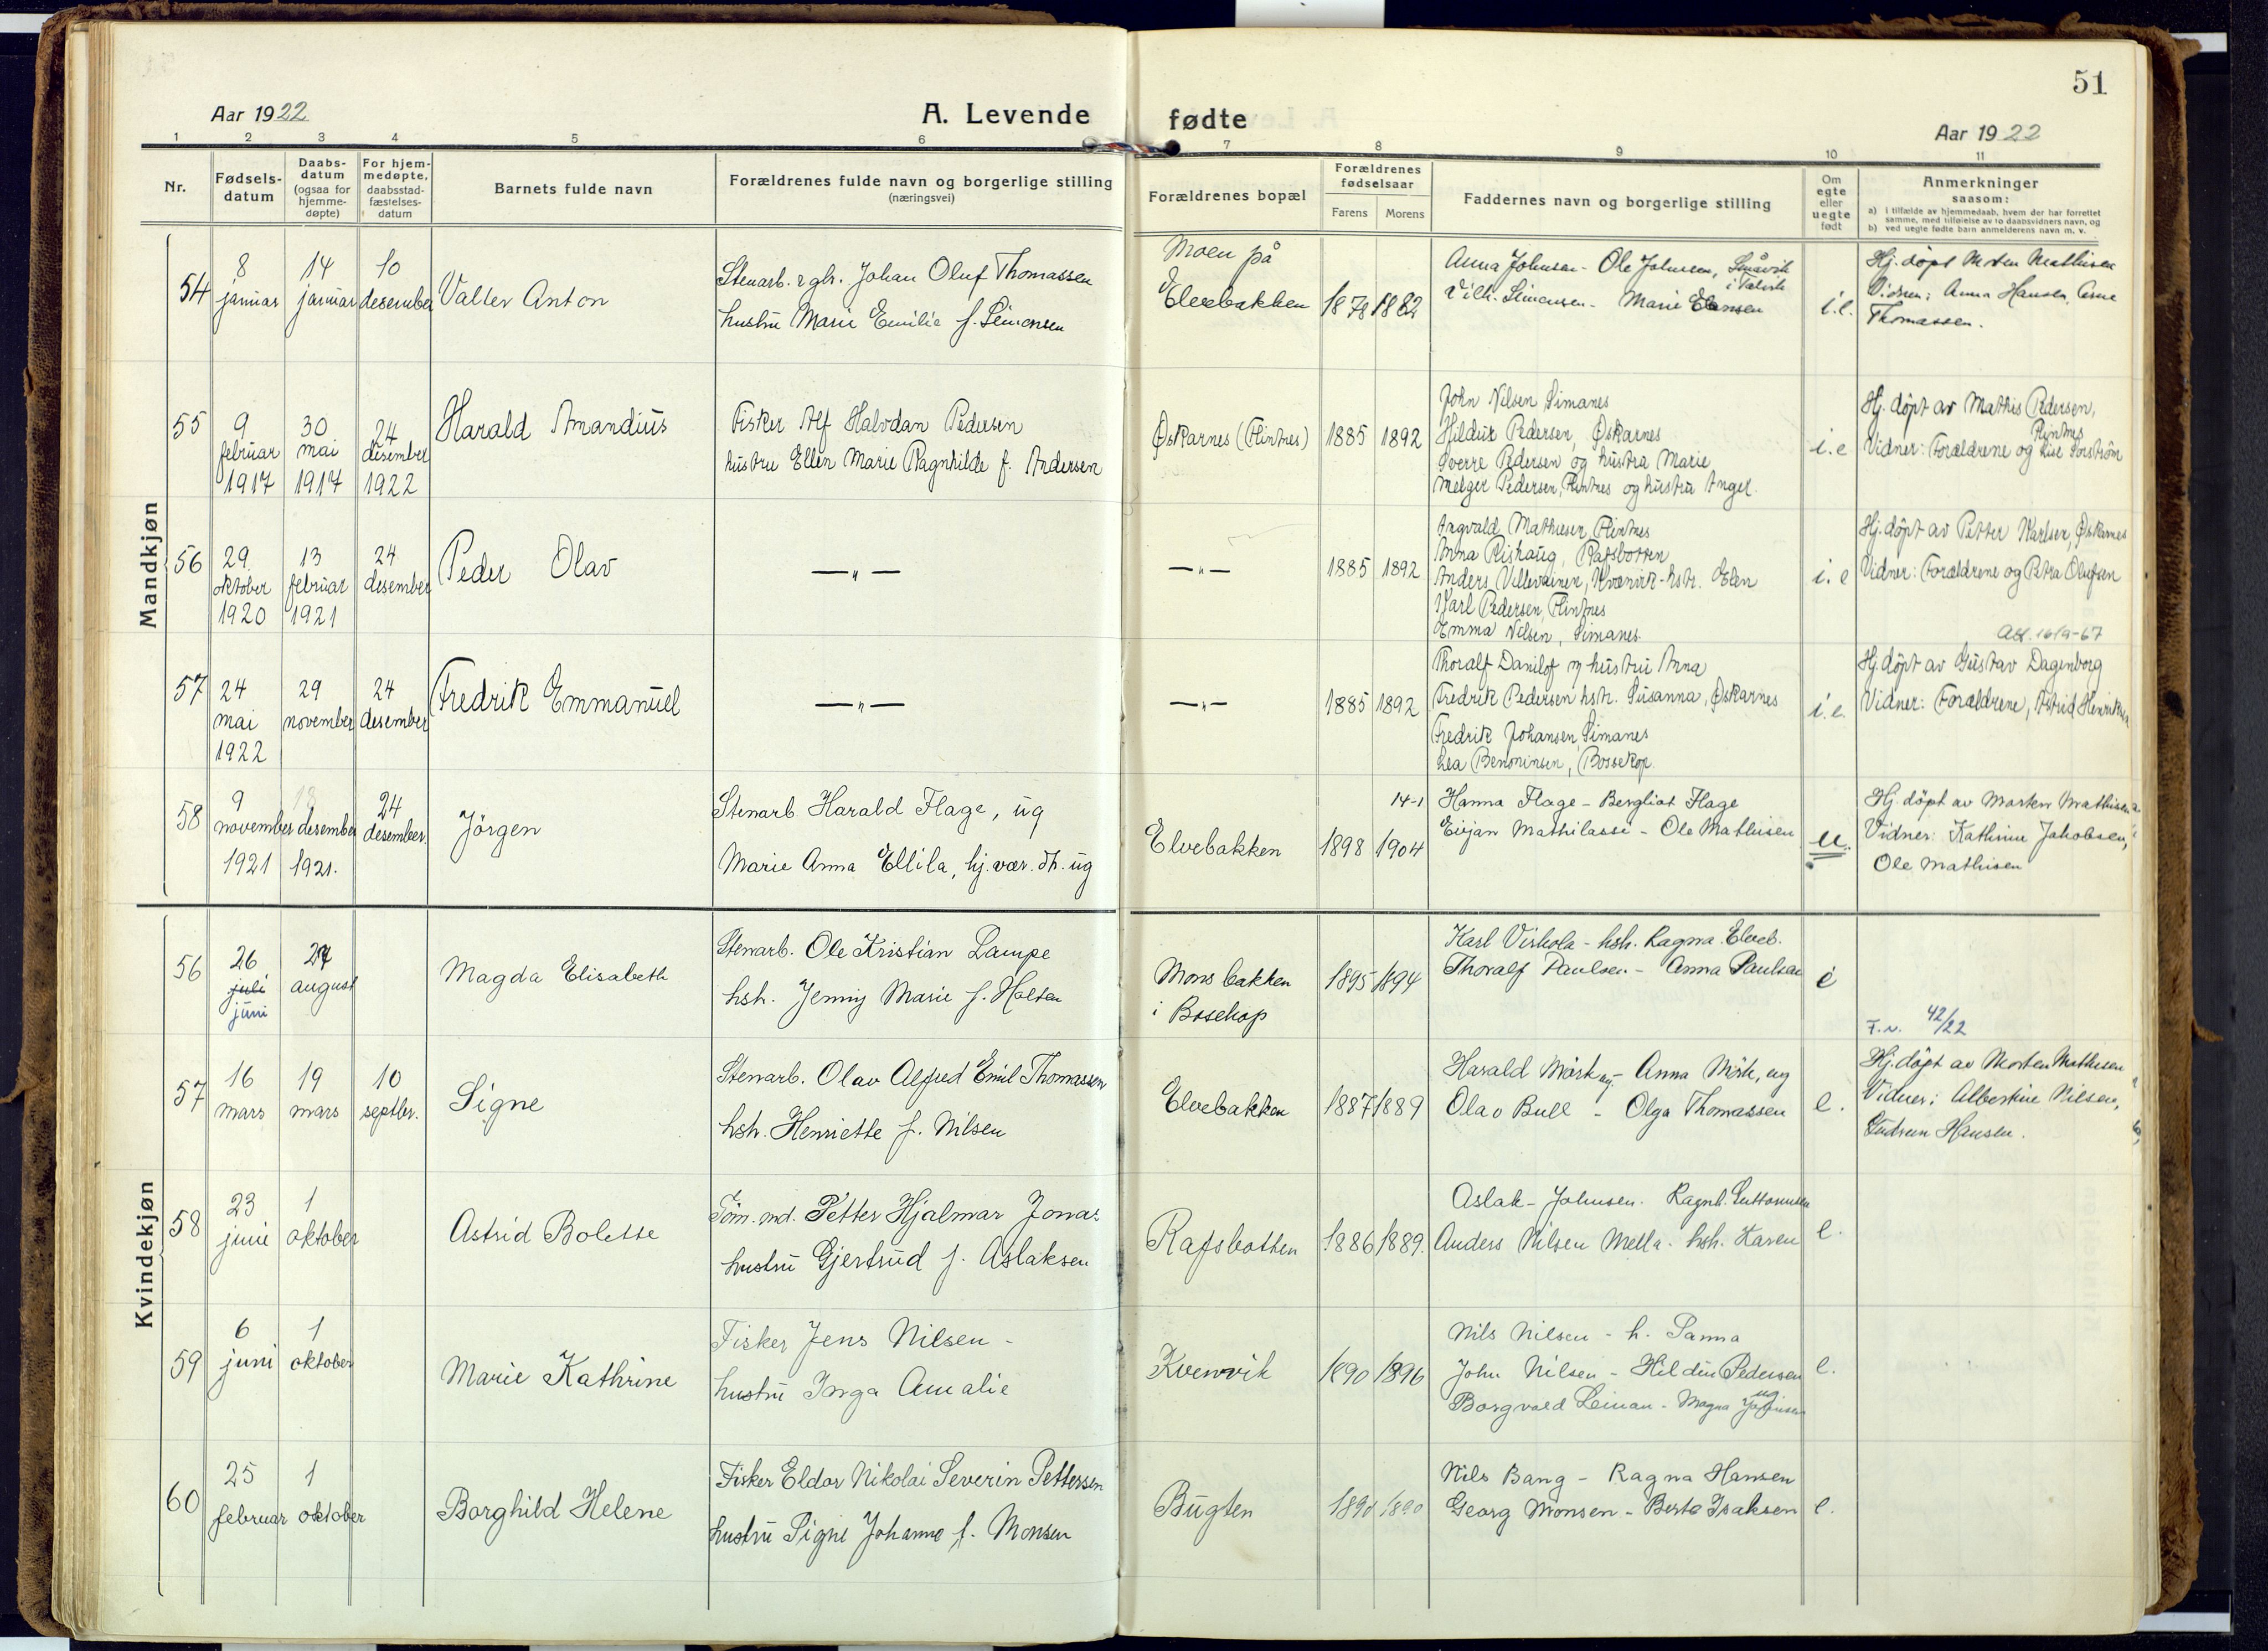 51
Aar 1922
A. Levende
fødte
Aar 1922
1 2 3 4 5 6 7 8 9 10 11
Nr.
Fødsels-
datum
Daabs-
datum
(ogsaa for
hjemme-
døpte)
For hjem-
medøpte,
daabsstad-
fæstelses-
datum
Barnets fulde navn
Forældrenes fulde navn og borgerlige stilling
(næringsvei)
Forældrenes bopæl
Forældrenes
fødselsaar
Farens Morens
Faddernes navn og borgerlige stilling
Om
egte
eller
uegte
født
Anmerkninger
saasom:
a) i tilfælde av hjemmedaab, hvem der har forrettet
samme, med tilføielse av to daabsvidners navn, og
b) ved uegte fødte barn anmelderens navn m. v.
Mandkjøn
54
8
januar
14
januar
10
desember
Valter Anton
Stenarb. Johan Oluf Thomassen
hustru Marie Emilie f. Simonsen
Moen på
Elvebakken
1878 1882
Anna Johnsen - Ole Johnsen,
Vilh. Simonsen - Marie
i.e.
Hj. døpt Morten Mathisen
Vidner: Anna Hansen,
Thomassen.
55
9
februar
1917
30
mai
1917
24
desember
1922
Harald Amandius
Fisker Alf Halvdan Pedersen
hustru Ellen Marie Ragnhilde f. Andersen
Øskarnes (Flintnes)
1885 1892
John Nilsen, Simanes
Hildur Pedersen, Øskarnes
Sverre Pedersen og hustru Marie
Melger Pedersen, Flintnes og hustru Angel.
i.e
Hj. døpt av Mathis Pedersen,
Flintnes
Vidner: Forældrene og
56
29.
oktober
1920
13
februar
1921
24
desember
Peder Olav
— " —
— " —
1885 1892
Angvald Mathisen, Flintnes
Anna Rishaug, Rafsbotten
Anders Villevainen, Kvænvik - hstr. Elen
Karl Pedersen, Flintnes
Emma Nilsen, Simanes
i. e
Hj. døpt av Petter Karlsen, Øskarnes
Vidner: Forældrene og Petra Olufsen
57
24
mai
1922
29
november
24
desember
Fredrik Emmanuel
— " —
— " —
1885 1892
Thoralf Danilof og hustru Anna
Fredrik Pedersen hstr. Susanna, Øskarnes
Fredrik Johansen, Simanes
Lea Benoninsen, Bossekop.
i. e.
Hj. døpt av Gustav Dagenborg
Vidner: Forældrene, Astrid
58
9
november
1921
13
desember
1921.
24
desember.
Jörgen
Stenarb. Harald Flage, ug
Marie Anna Ellila, hj. vær. dt. ug
Elvebakken
14-1
1898 1904
Hanna Flage - Bergliot Flage
Mathilassi - Ole Mathisen
u.
Hj. døpt av Morten Mathisen
Vidner: Kathrine Jakobsen,
Ole Mathisen
Kvindekjøn
56
26
juli
juni
27
august
Magda Elisabeth
Stenarb. Ole Kristian Lampe
hstr. Jenny Marie f. Holten
Mons bakken
i Bosekop
1895 1894
Karl Viskola - hstr. Ragna. Elveb.
Thoralf Paulsen - Anna Paulsen
e
F.v. 42/22
57
16
mars
19
mars
10
septbr.
Signe
Stenarb. Olav Alfred Emil Thomassen
hstr. Henriette f. Nilsen
Elvebakken
1887 1889
Harald Mörk ug - Anna Mörk, ug
Olav Bull - Olga Thomassen
e.
Hj. døpt av Morten Mathisen
Vidner: Albertine Nilsen,
Gudrun Hansen.
58
23
juni
1
oktober
Astrid Bolette
Töm. md. Petter Hjalmar Jonas
hustru Gjertrud f. Aslaksen
Rafsbotten
1886 1889.
Aslak - Johnsen. Ragnh.
Anders Nilsen Mella - hstr. Karen
e.
59
6
juni
1
oktober
Marie Kathrine
Fisker Jens Nilsen -
hustru Inga Amalie
Kvenvik
1890 1896
Nils Nilsen - h. Sanna
John Nilsen - Hildur Pedersen
Borgvald Leinan - Magna
e.
60
25
februar
1
oktober
Borghild Helene
Fisker Eldor Nikolai Severin Pettersen
hustru Signe Johanne f. Monsen
Bugten
1890 1890
Nils Bang - Ragna Hansen
Georg Monsen - Berte Isaksen
e.